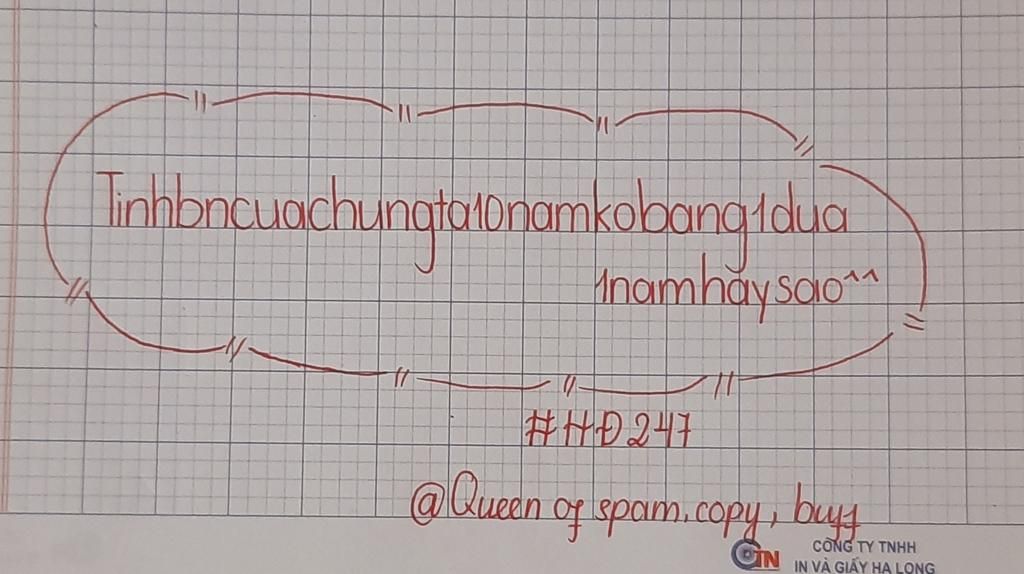 Tinhbncuachungta10namkobang1dua
1namhaysao^^
#HĐ247
@Queen of spam.copy, buff
CTN
CÔNG TY TNHH
IN VÀ GIẤY HẠ LONG